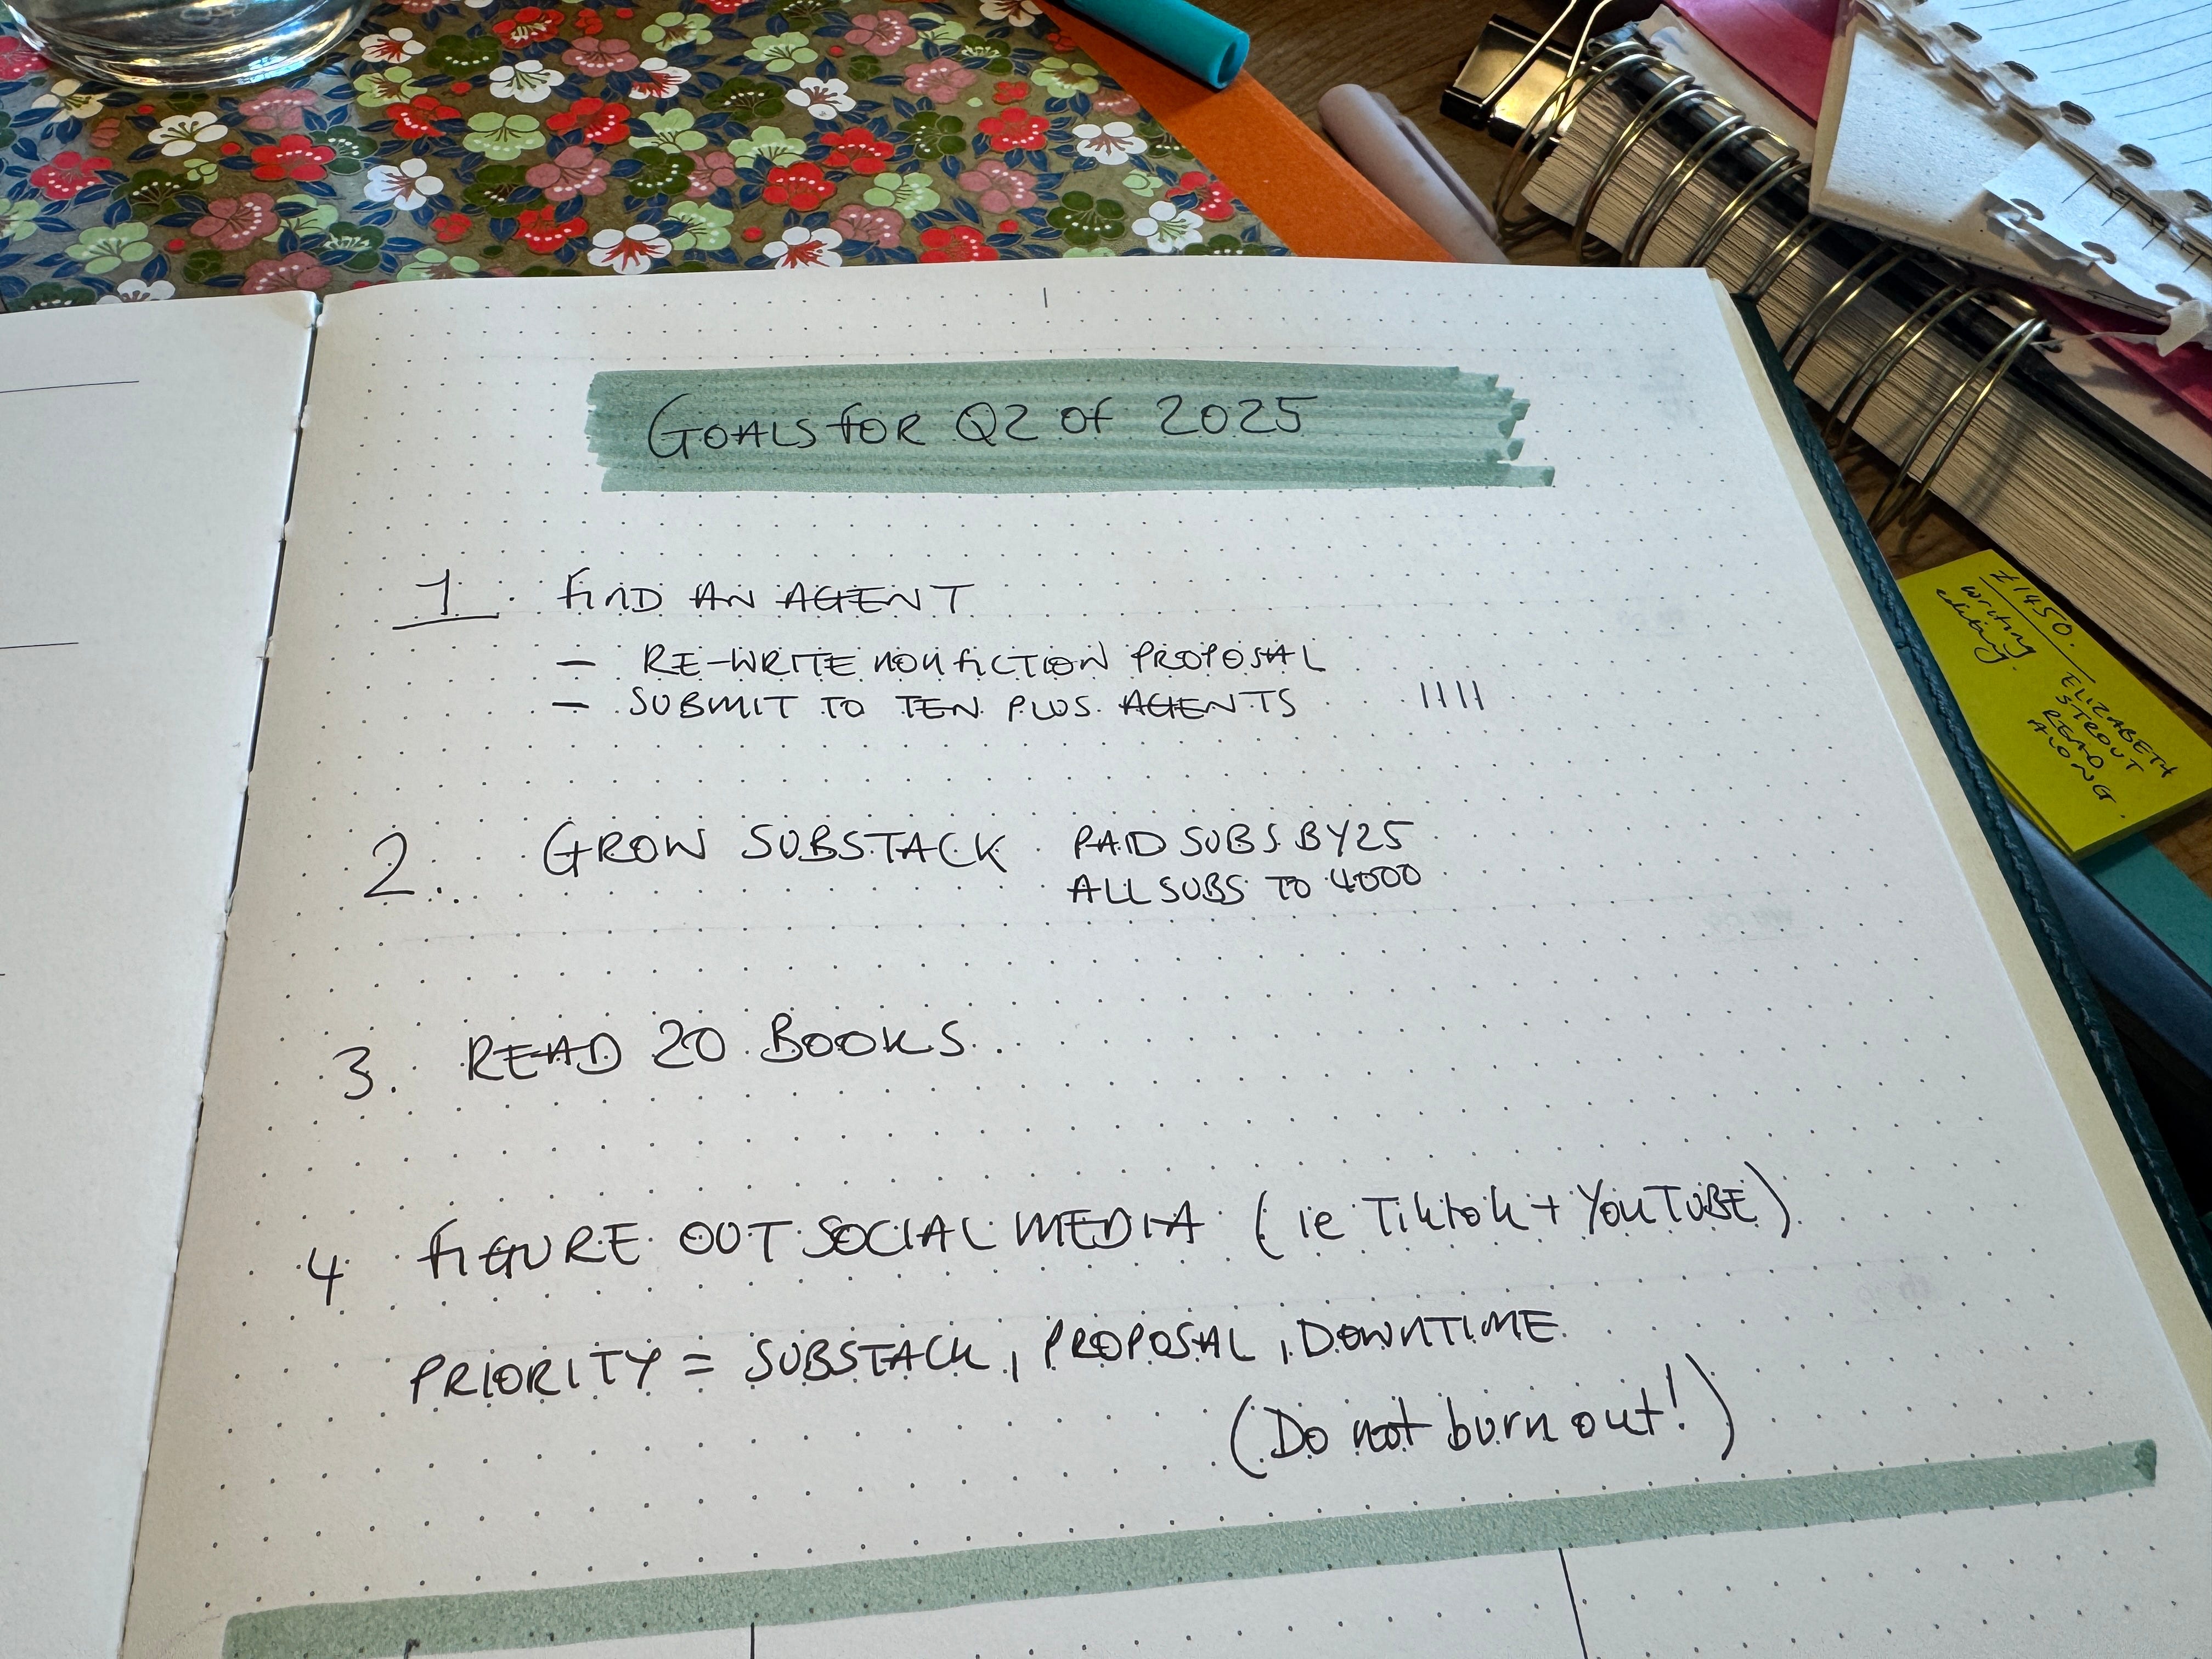 GOALS FOR Q2 OF 2025
1. FIND AN AGENT
— RE-WRITE NONFICTION PROPOSAL
— SUBMIT TO TEN PLUS AGENTS IIII
2. GROW SUBSTACK PAID SUBS BY 25
ALL SUBS TO 4000
3. READ 20 BOOKS.
4 FIGURE OUT SOCIAL MEDIA (ie TikTok + YOUTUBE)
PRIORITY = SUBSTACK, PROPOSAL, DOWNTIME
(Do not burn out!)
1450.
writing
editing.
ELIZABETH
STROUT
READ
ALONG